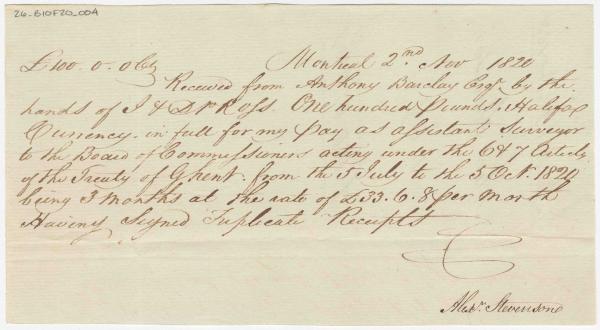 26-B10F20_004
£100. 0. 0 Cy Montreal 2nd Nov 1820
Received from Anthony Barclay Esqr. by the
hands of J & D P Ross. One hundred pounds, Halifax
Currency. in full for my pay as assistant Surveyor
to the Board of Commissioners acting under the 6 & 7 Articles
of the Treaty of Ghent. from the 5 July to the 5 Oct. 1820
being 3 months at the rate of £33. 6. 8 per month
Having Signed Triplicate Receipts
Alexr. Stevenson